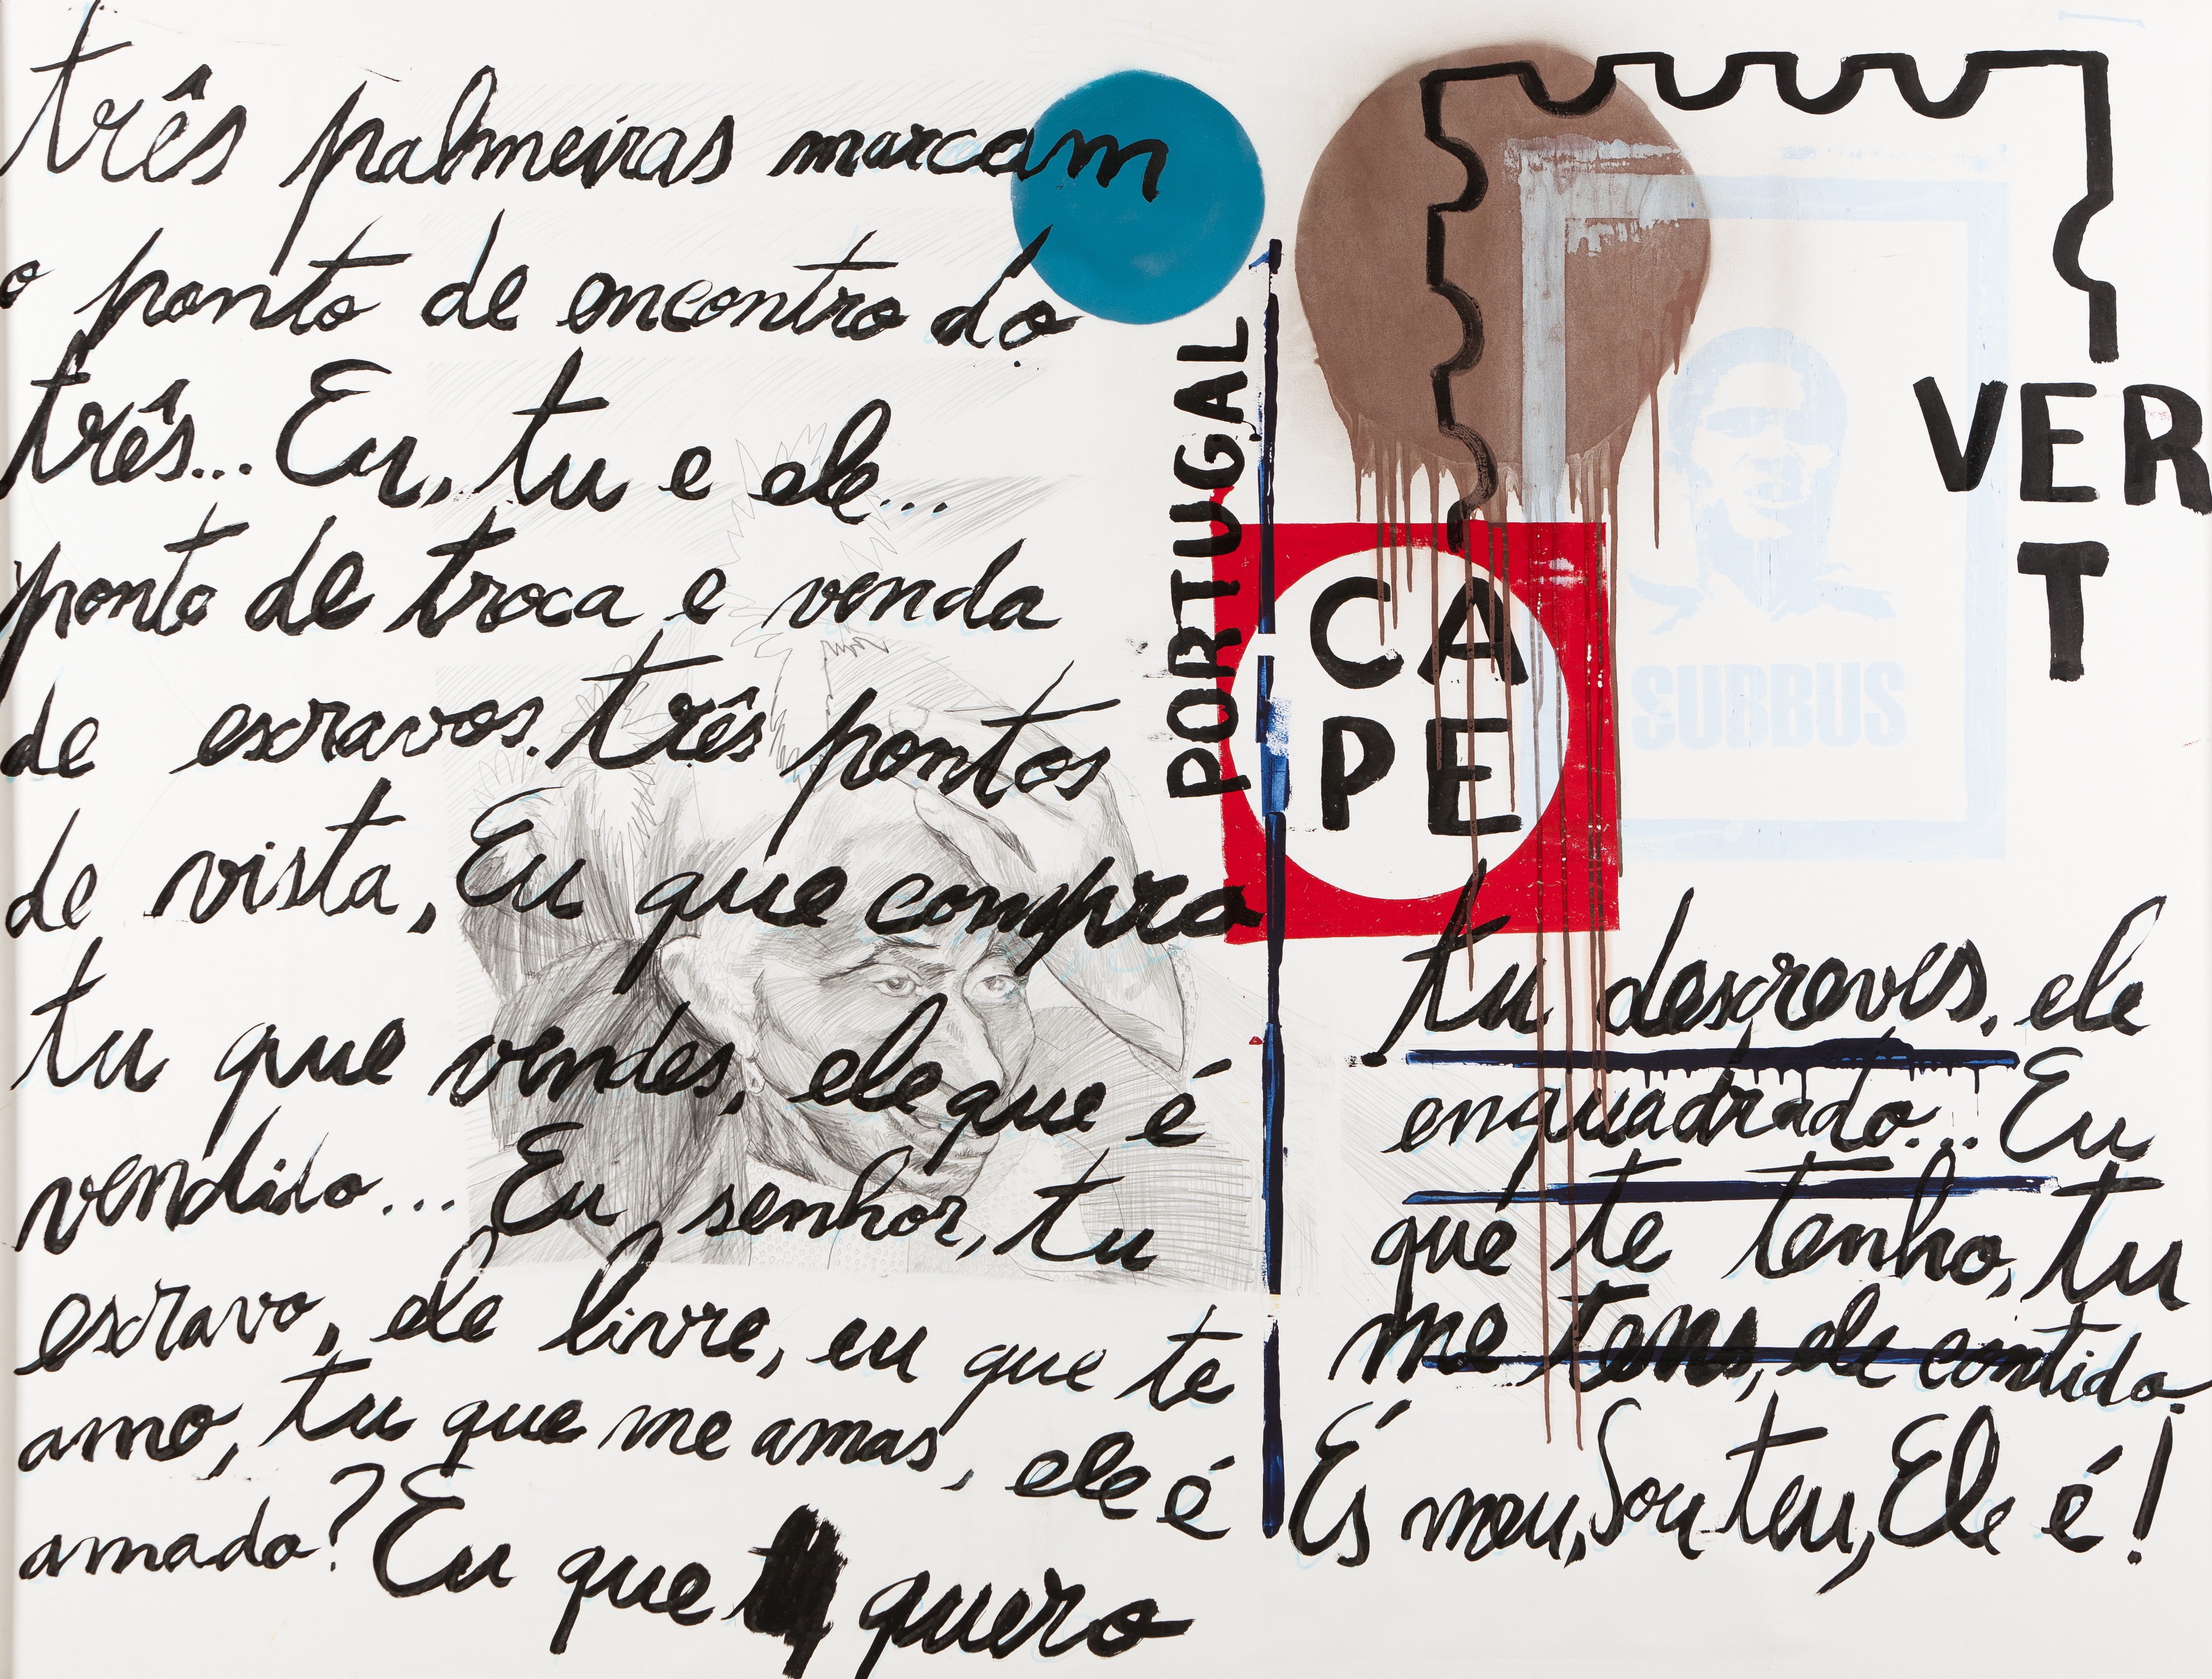 três palmeiras marcam
o ponto de encontro do
três... Eu, tu e ele...
ponto de troca e venda
de escravos. três pontos
de vista, Eu que compro
tu que vendes, ele que é
vendido... Eu senhor, tu
escravo, ele livre, eu que te
amo, tu que me amas, ele é
amado? Eu que quero
PORTUGAL
CA
PE
VER
T
SUBBUS
tu descreves, ele
enquadrado... Eu
que te tenho, tu
me tens, ele contido.
És meu, Sou teu, Ele é!